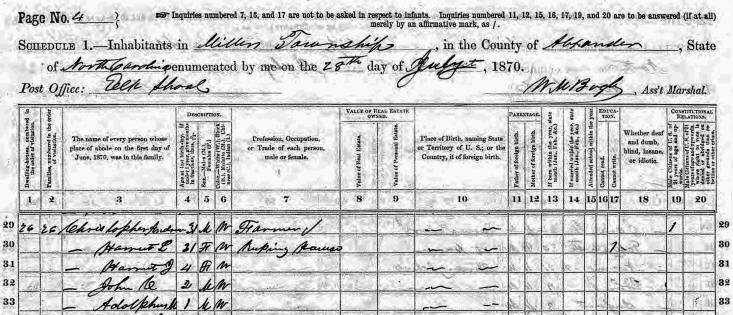 Page No. 4 Inquiries numbered 7, 16, and 17 are not to be asked in respect to infants. Inquiries numbered 11, 12, 15, 16, 17, 19, and 20 are to be answered (if at all) merely by an affirmative mark, as /.
SCHEDULE 1.—Inhabitants in Millers Township, in the County of Alexander, State
of North Carolina enumerated by me on the 28th day of July, 1870.
Post Office: Elk Shoal W. M. Bogle, Ass't Marshal.
DESCRIPTION. VALUE OF REAL ESTATE OWNED. PARENTAGE. EDUCATION. CONSTITUTIONAL RELATIONS.
Dwelling-houses, numbered in the order of visitation.
Families, numbered in the order of visitation.
The name of every person whose place of abode on the first day of June, 1870, was in this family.
Profession, Occupation, or Trade of each person, male or female.
Value of Real Estate.
Value of Personal Estate.
Place of Birth, naming State or Territory of U. S.; or the Country, if of foreign birth.
Father of foreign birth.
Mother of foreign birth.
Attended school within the year.
Cannot read.
Cannot write.
Whether deaf and dumb, blind, insane, or idiotic.
1 2 3 4 5 6 7 8 9 10 11 12 13 14 15 16 17 18 19 20
29 26 26 Christopher 31 M W Farmer — — 1 29
30 — Harriet L 31 F W Keeping House — — 1 30
31 — Harriet J 4 F W — — 31
32 — John C 2 M W — — 32
33 — Adolphus 1 M W — — 33